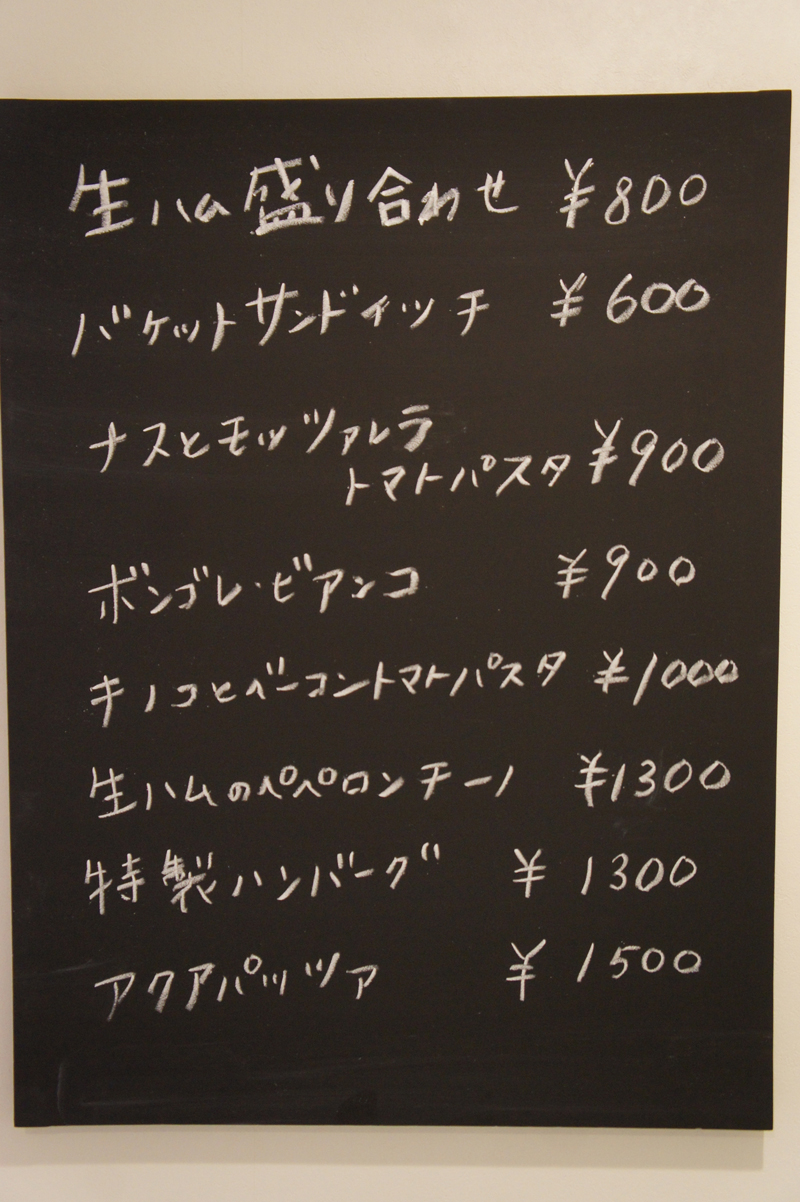 生ハム盛り合わせ ¥800
バケットサンドイッチ ¥600
ナスとモッツァレラ
トマトパスタ ¥900
ボンゴレ・ビアンコ ¥900
キノコとベーコントマトパスタ ¥1000
生ハムのペペロンチーノ ¥1300
特製ハンバーグ ¥1300
アクアパッツァ ¥1500